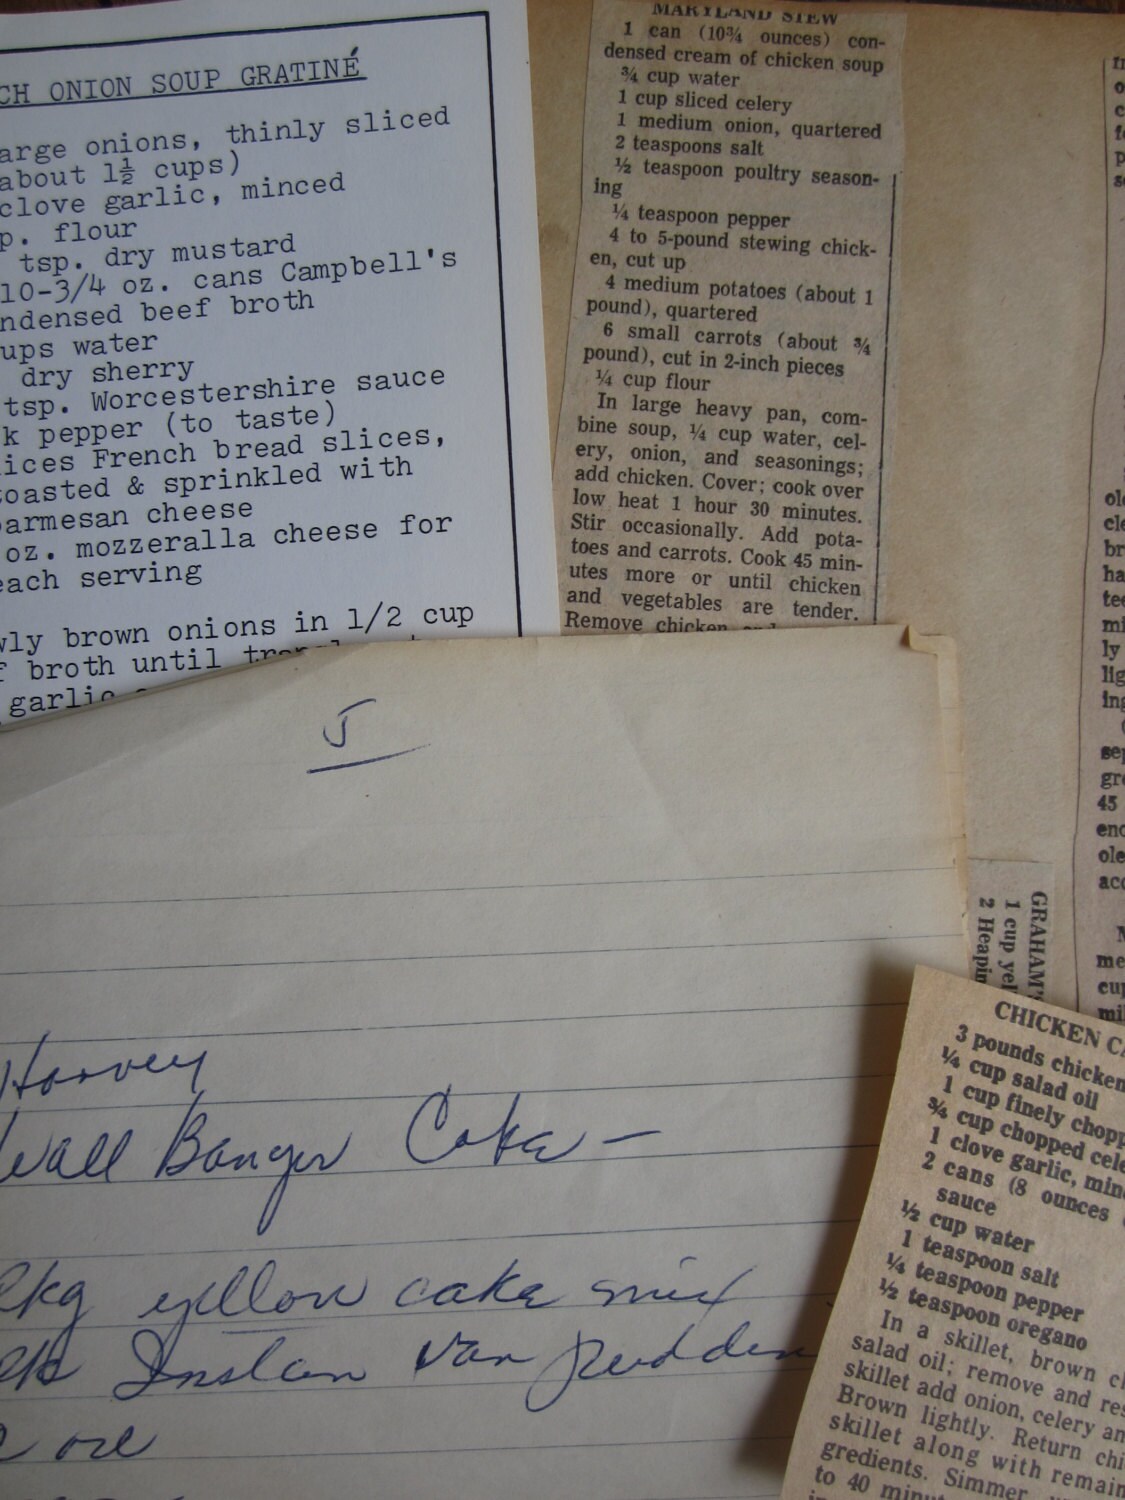 CH ONION SOUP GRATINÉ
arge onions, thinly sliced
about 1½ cups)
clove garlic, minced
p. flour
tsp. dry mustard
10-3/4 oz. cans Campbell's
ndensed beef broth
ups water
dry sherry
tsp. Worcestershire sauce
k pepper (to taste)
ices French bread slices,
toasted & sprinkled with
parmesan cheese
oz. mozzeralla cheese for
each serving
wly brown onions in 1/2 cup
f broth until
garlic
MARYLAND STEW
1 can (10¾ ounces) con-
densed cream of chicken soup
¾ cup water
1 cup sliced celery
1 medium onion, quartered
2 teaspoons salt
½ teaspoon poultry season-
ing
¼ teaspoon pepper
4 to 5-pound stewing chick-
en, cut up
4 medium potatoes (about 1
pound), quartered
6 small carrots (about ¾
pound), cut in 2-inch pieces
¼ cup flour
In large heavy pan, com-
bine soup, ¼ cup water, cel-
ery, onion, and seasonings;
add chicken. Cover; cook over
low heat 1 hour 30 minutes.
Stir occasionally. Add pota-
toes and carrots. Cook 45 min-
utes more or until chicken
and vegetables are tender.
Remove chicken and
ole
cle
br
ha
tee
mi
ly
lig
ing
sep
gre
45
end
ole
acc
me
cup
mil
J
Harvey
Wall Banger Cake —
pkg yellow cake mix
pk Instan Van Pudden
oil
GRAHAM'S
1 cup yel
2 Heapin
CHICKEN CA
3 pounds chicken
¼ cup salad oil
1 cup finely chopp
¾ cup chopped cele
1 clove garlic, min
2 cans (8 ounces
sauce
½ cup water
1 teaspoon salt
¼ teaspoon pepper
½ teaspoon oregano
In a skillet, brown ch
salad oil; remove and res
skillet add onion, celery an
Brown lightly. Return chi
skillet along with remain
gredients. Simmer
to 40 minut